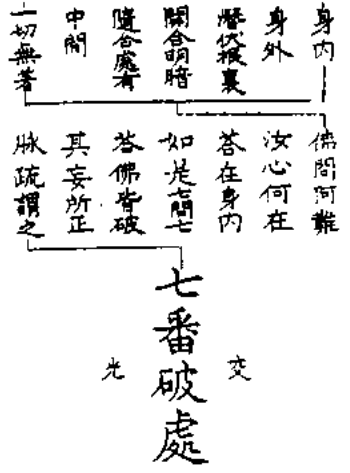 身內
身外
潛伏根裏
開合明暗
隨合處有
中間
一切無著
佛問阿難
汝心何在
答在身內
如是七問七
答佛皆破
其妄所正
脉疏謂之
交光
七番破處